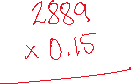 2889
x 0.15